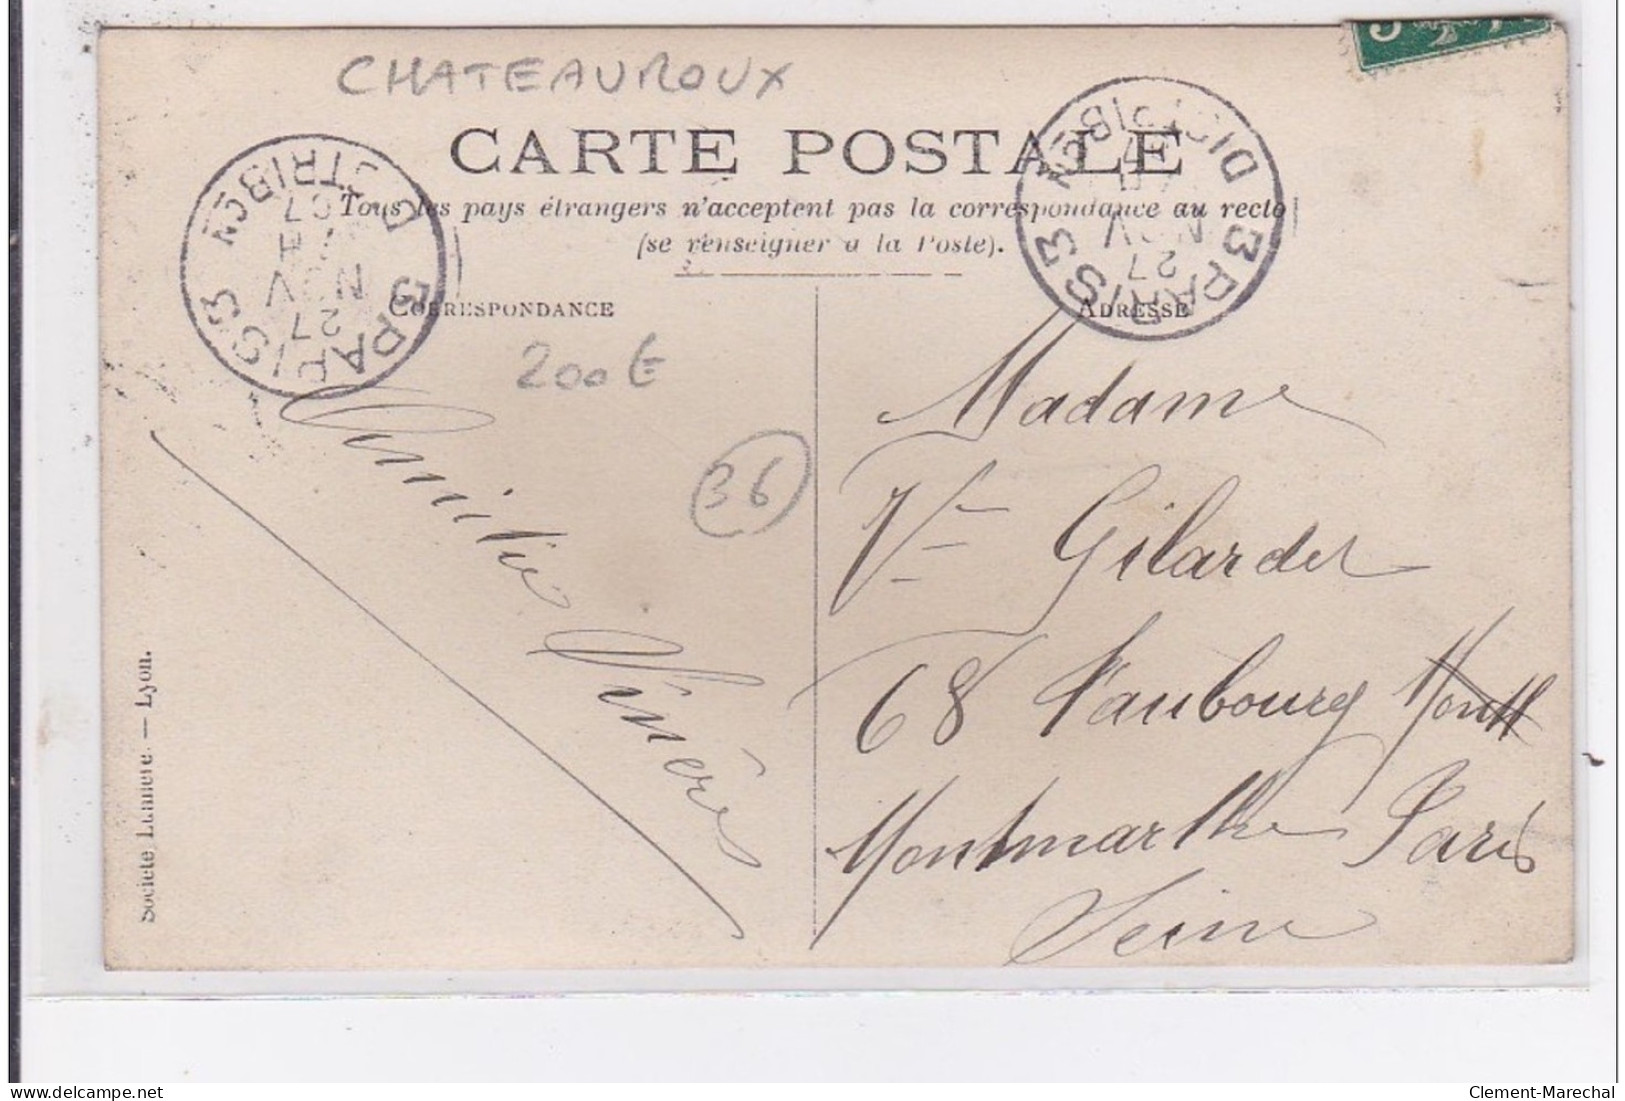 CHATEAUROUX
CARTE POSTALE
Tous les pays étrangers n'acceptent pas la correspondance au recto
(se renseigner à la Poste).
CORRESPONDANCE
ADRESSE
PARIS 3 DISTRIBON 3
27
NOV
07
PARIS 3 DISTRIBON 3
27
NOV
200€
36
Amitié
Madame
Vve Gilardet
68 Faubourg
Montmarthe Paris
Seine
Société Lumière. — Lyon.
Clement-Marechal